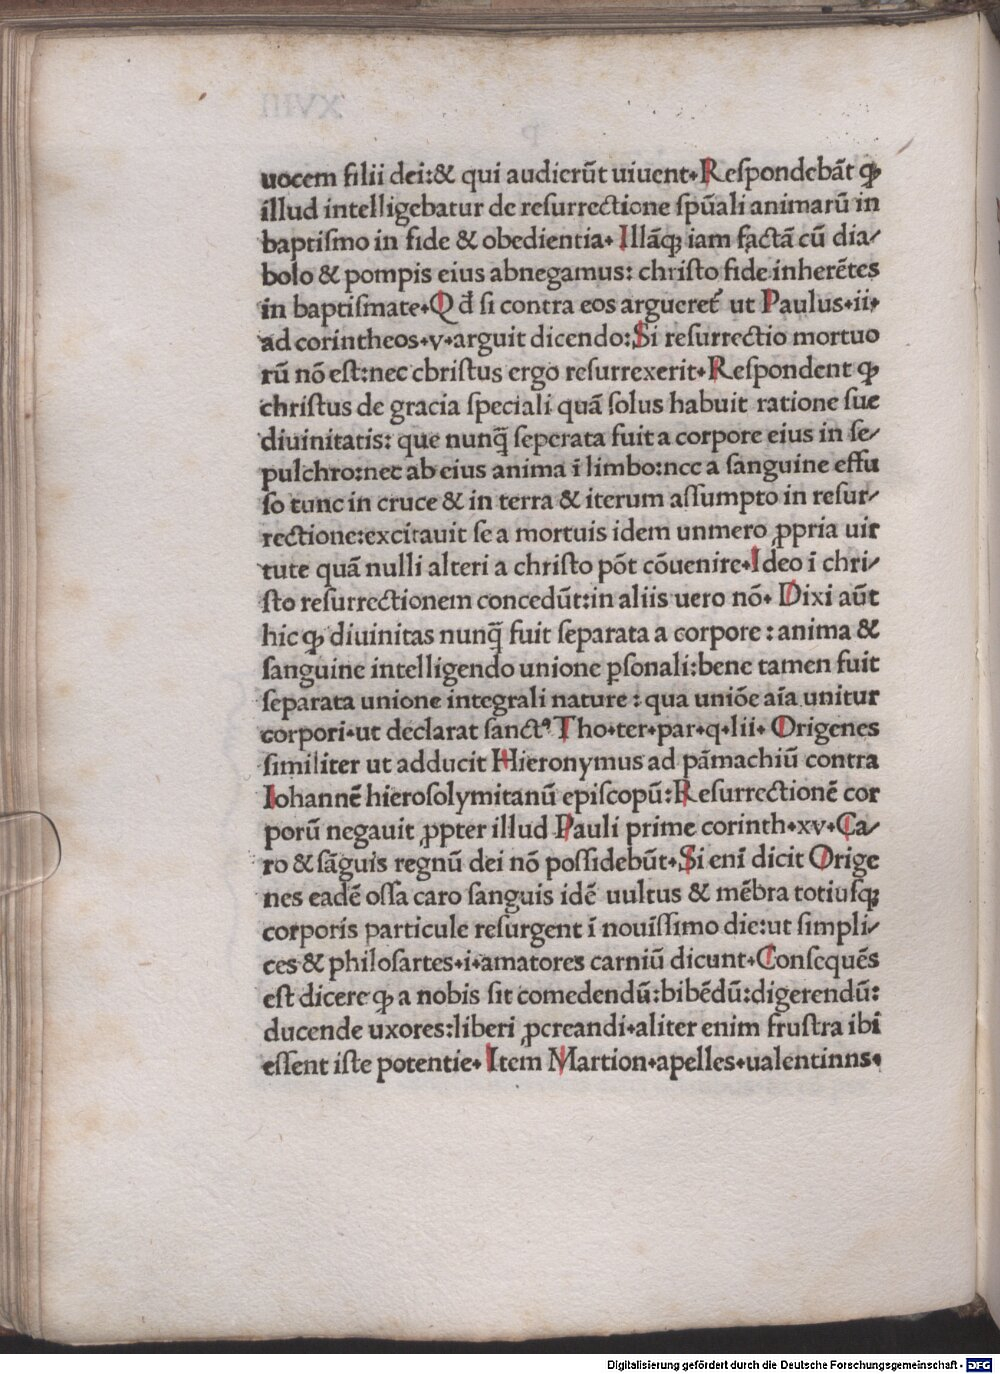 uocem filii dei:& qui audierūt uiuent. Respondebāt ꝙ
illud intelligebatur de resurrectione spūali animarū in
baptismo in fide & obedientia. Illāqꝫ iam factā cū dia/
bolo & pompis eius abnegamus: christo fide inherētes
in baptismate. Q đ si contra eos argueret᷑ ut Paulus.ii.
ad corintheos.v.arguit dicendo: Si resurrectio mortuo
rū nō est:nec cbristus ergo resurrexerit. Respondent ꝙ
christus de gracia speciali quā solus habuit ratione sue
diuinitatis: que nunq̄ seperata fuit a corpore eius in se/
pulchro:nec ab eius anima ī limbo:nec a sanguine effu
so tunc in cruce & in terra & iterum assumpto in resur/
rectione:excitauit se a mortuis idem unmero ꝓpria uir
tute quā nulli alteri a christo pōt cōuenire. Ideo ī chri/
sto resurrectionem concedūt:in aliis uero nō. Dixi aūt
hic ꝙ diuinitas nunq̄ fuit separata a corpore : anima &
sanguine intelligendo unione ꝑsonali:bene tamen fuit
separata unione integrali nature : qua uniōe aīa unitur
corpori.ut declarat sanctꝰ Tho.ter.par.q.lii. Origenes
similiter ut adducit Hieronymus ad pāmachiū contra
Iohannē hierosolymitanū episcopū: Resurrectionē cor
porū negauit ꝓpter illud Pauli prime corinth.xv. Ca/
ro & sāguis regnū dei nō possidebūt. Si enī dicit Orige
nes eadē ossa caro sanguis idē uultus & mēbra totiusqꝫ
corporis particule resurgent ī nouissimo die:ut simpli/
ces & philosartes.i.amatores carniū dicunt. Consequēs
est dicere ꝙ a nobis sit comedendū:bibēdū:digerendū:
ducende uxores:liberi ꝓcreandi.aliter enim frustra ibi
essent iste potentie. Item Martion.apelles.ualentinns.
Digitalisierung gefördert durch die Deutsche Forschungsgemeinschaft - DFG